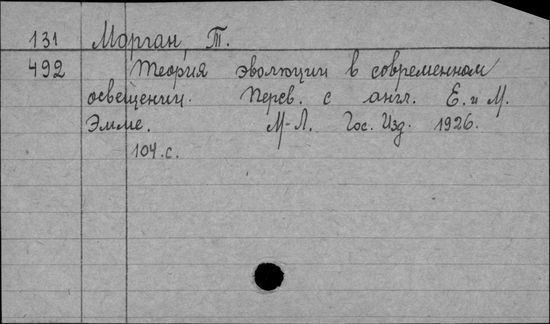 131 Морган, Т.
492 Теория эволюции в современном
освещении. Перев. с англ. Е. и М.
Эмме. М-Л. Гос. Изд. 1926.
104 с.